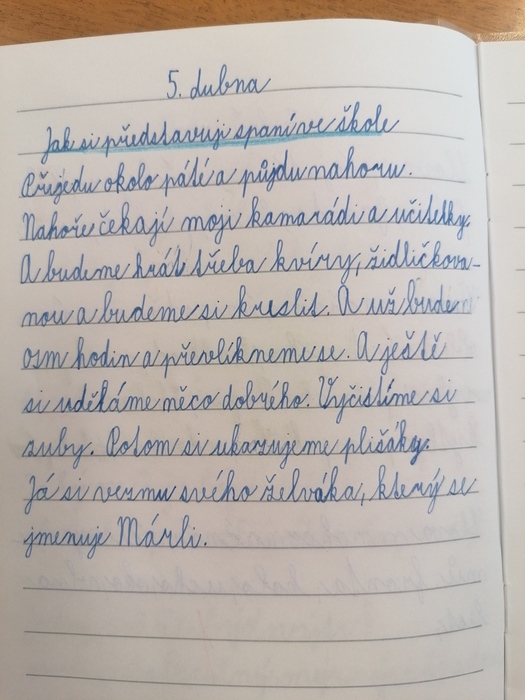 5. dubna
Jak si představuji spaní ve škole
Přijedu okolo páté a půjdu nahoru.
Nahoře čekají moji kamarádi a učitelky.
A budeme hrát třeba kvízy, židličkova-
nou a budeme si kreslit. A už bude
osm hodin a převlíkneme se. A ještě
si uděláme něco dobrého. Vyčistíme si
zuby. Potom si ukazujeme plišáky.
Já si vezmu svého želváka, který se
jmenuje Márli.